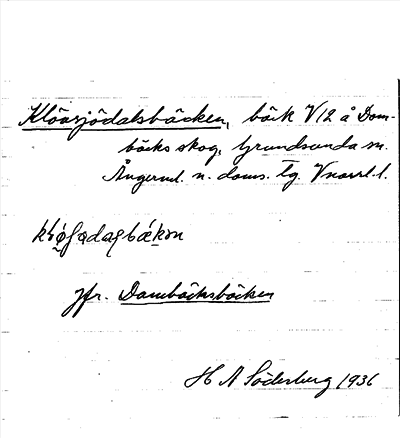 Klövsjödalsbäcken, bäck V12 å Dom-
bäcks skog, Grundsunda sn.
Ångerml. n. doms. tg. Vnorrl. l.
jfr. Dombäcksbäcken
H A Söderberg 1936